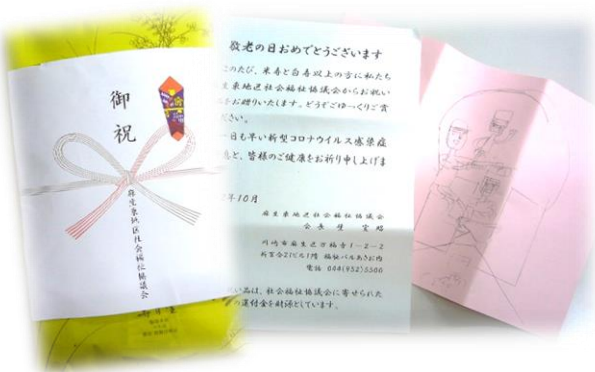 御祝
麻生東地区社会福祉協議会
敬老の日おめでとうございます
このたび、米寿と白寿以上の方に私たち
生東地区社会福祉協議会からお祝い
をお贈りいたします。どうぞごゆっくりご賞
ださい。
一日も早い新型コロナウイルス感染症
息と、皆様のご健康をお祈り申し上げま
年10月
麻生東地区社会福祉協議会
会長
川崎市麻生区万福寺1-2-2
新百合21ビル1階 福祉パルあさお内
電話 044(952)5500
い品は、社会福祉協議会に寄せられた
の還付金を財源としています。